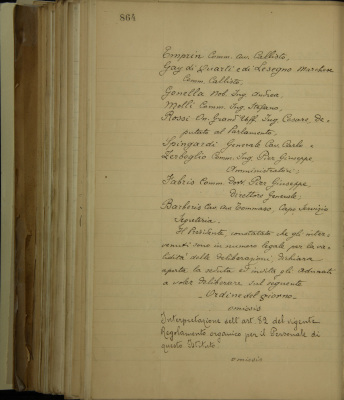 864
Emprin Comm. Avv. Callisto,
Gay di Quarti e di Lesegno Marchese
Comm. Callisto,
Gonella Nob. Ing. Andrea,
Molli Comm. Ing. Stefano,
Rossi On. Grand' Uff. Ing. Cesare, De-
putato al Parlamento,
Spingardi Generale Cav. Carlo e
Zerboglio Comm. Ing. Pier Giuseppe
Amministratori;
Fabris Comm. Dott. Pier Giuseppe,
Direttore Generale,
Barberis Cav. Avv. Tommaso, Capo Servizio
Segreteria.
Il Presidente, constatato che gli inter-
venuti sono in numero legale per la va-
lidità delle deliberazioni, dichiara
aperta la seduta ed invita gli adunati
a voler deliberare sul seguente
Ordine del giorno
omissis
Interpretazione dell'art. 82 del vigente
Regolamento organico per il Personale di
questo Istituto.
omissis